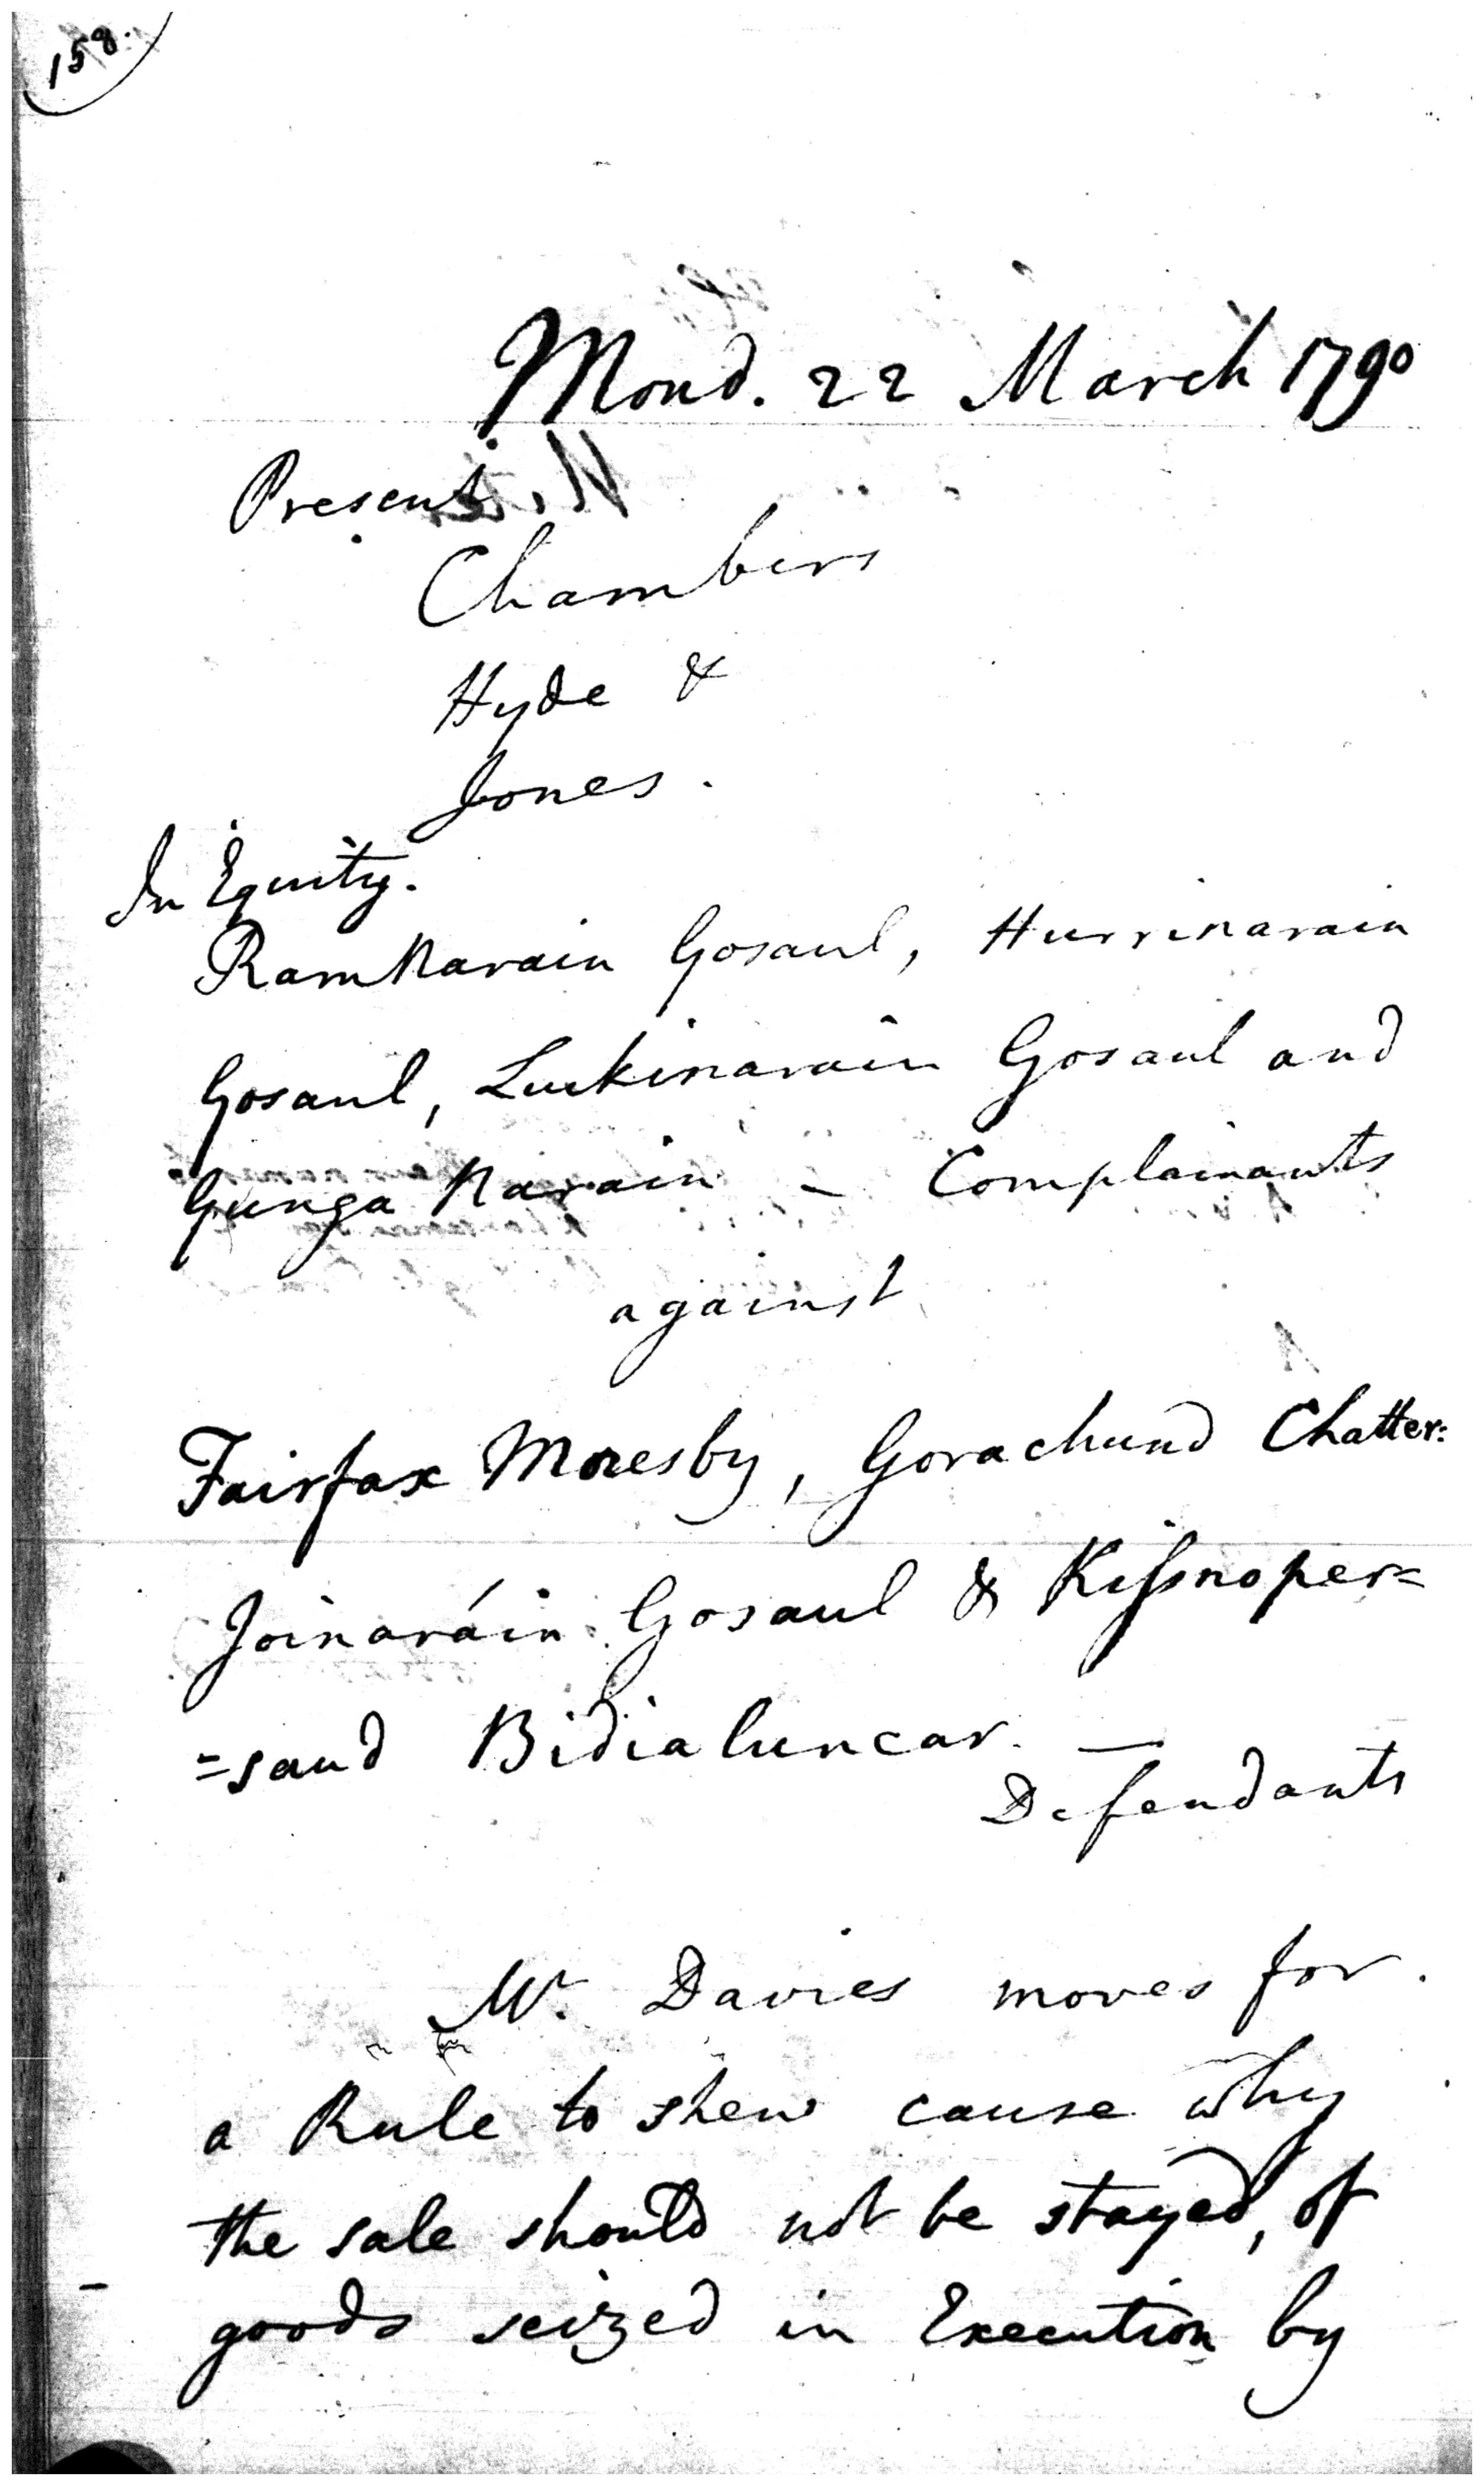 158.
Mond. 22 March 1790
Present.
Chambers
Hyde &
Jones.
In Equity.
RamNarain Gosaul, Hurrinarain
Gosaul, Luckinarain Gosaul and
Gunga Narain – Complainants
against
Fairfax Moresby, Gorachund Chatter:
Joinaráin Gosaul & Kissnoper=
=saud Bidialuncar. —
Defendants
Mr. Davies moves for
a Rule to shew cause why
the sale should not be stayed, of
goods seized in Execution by